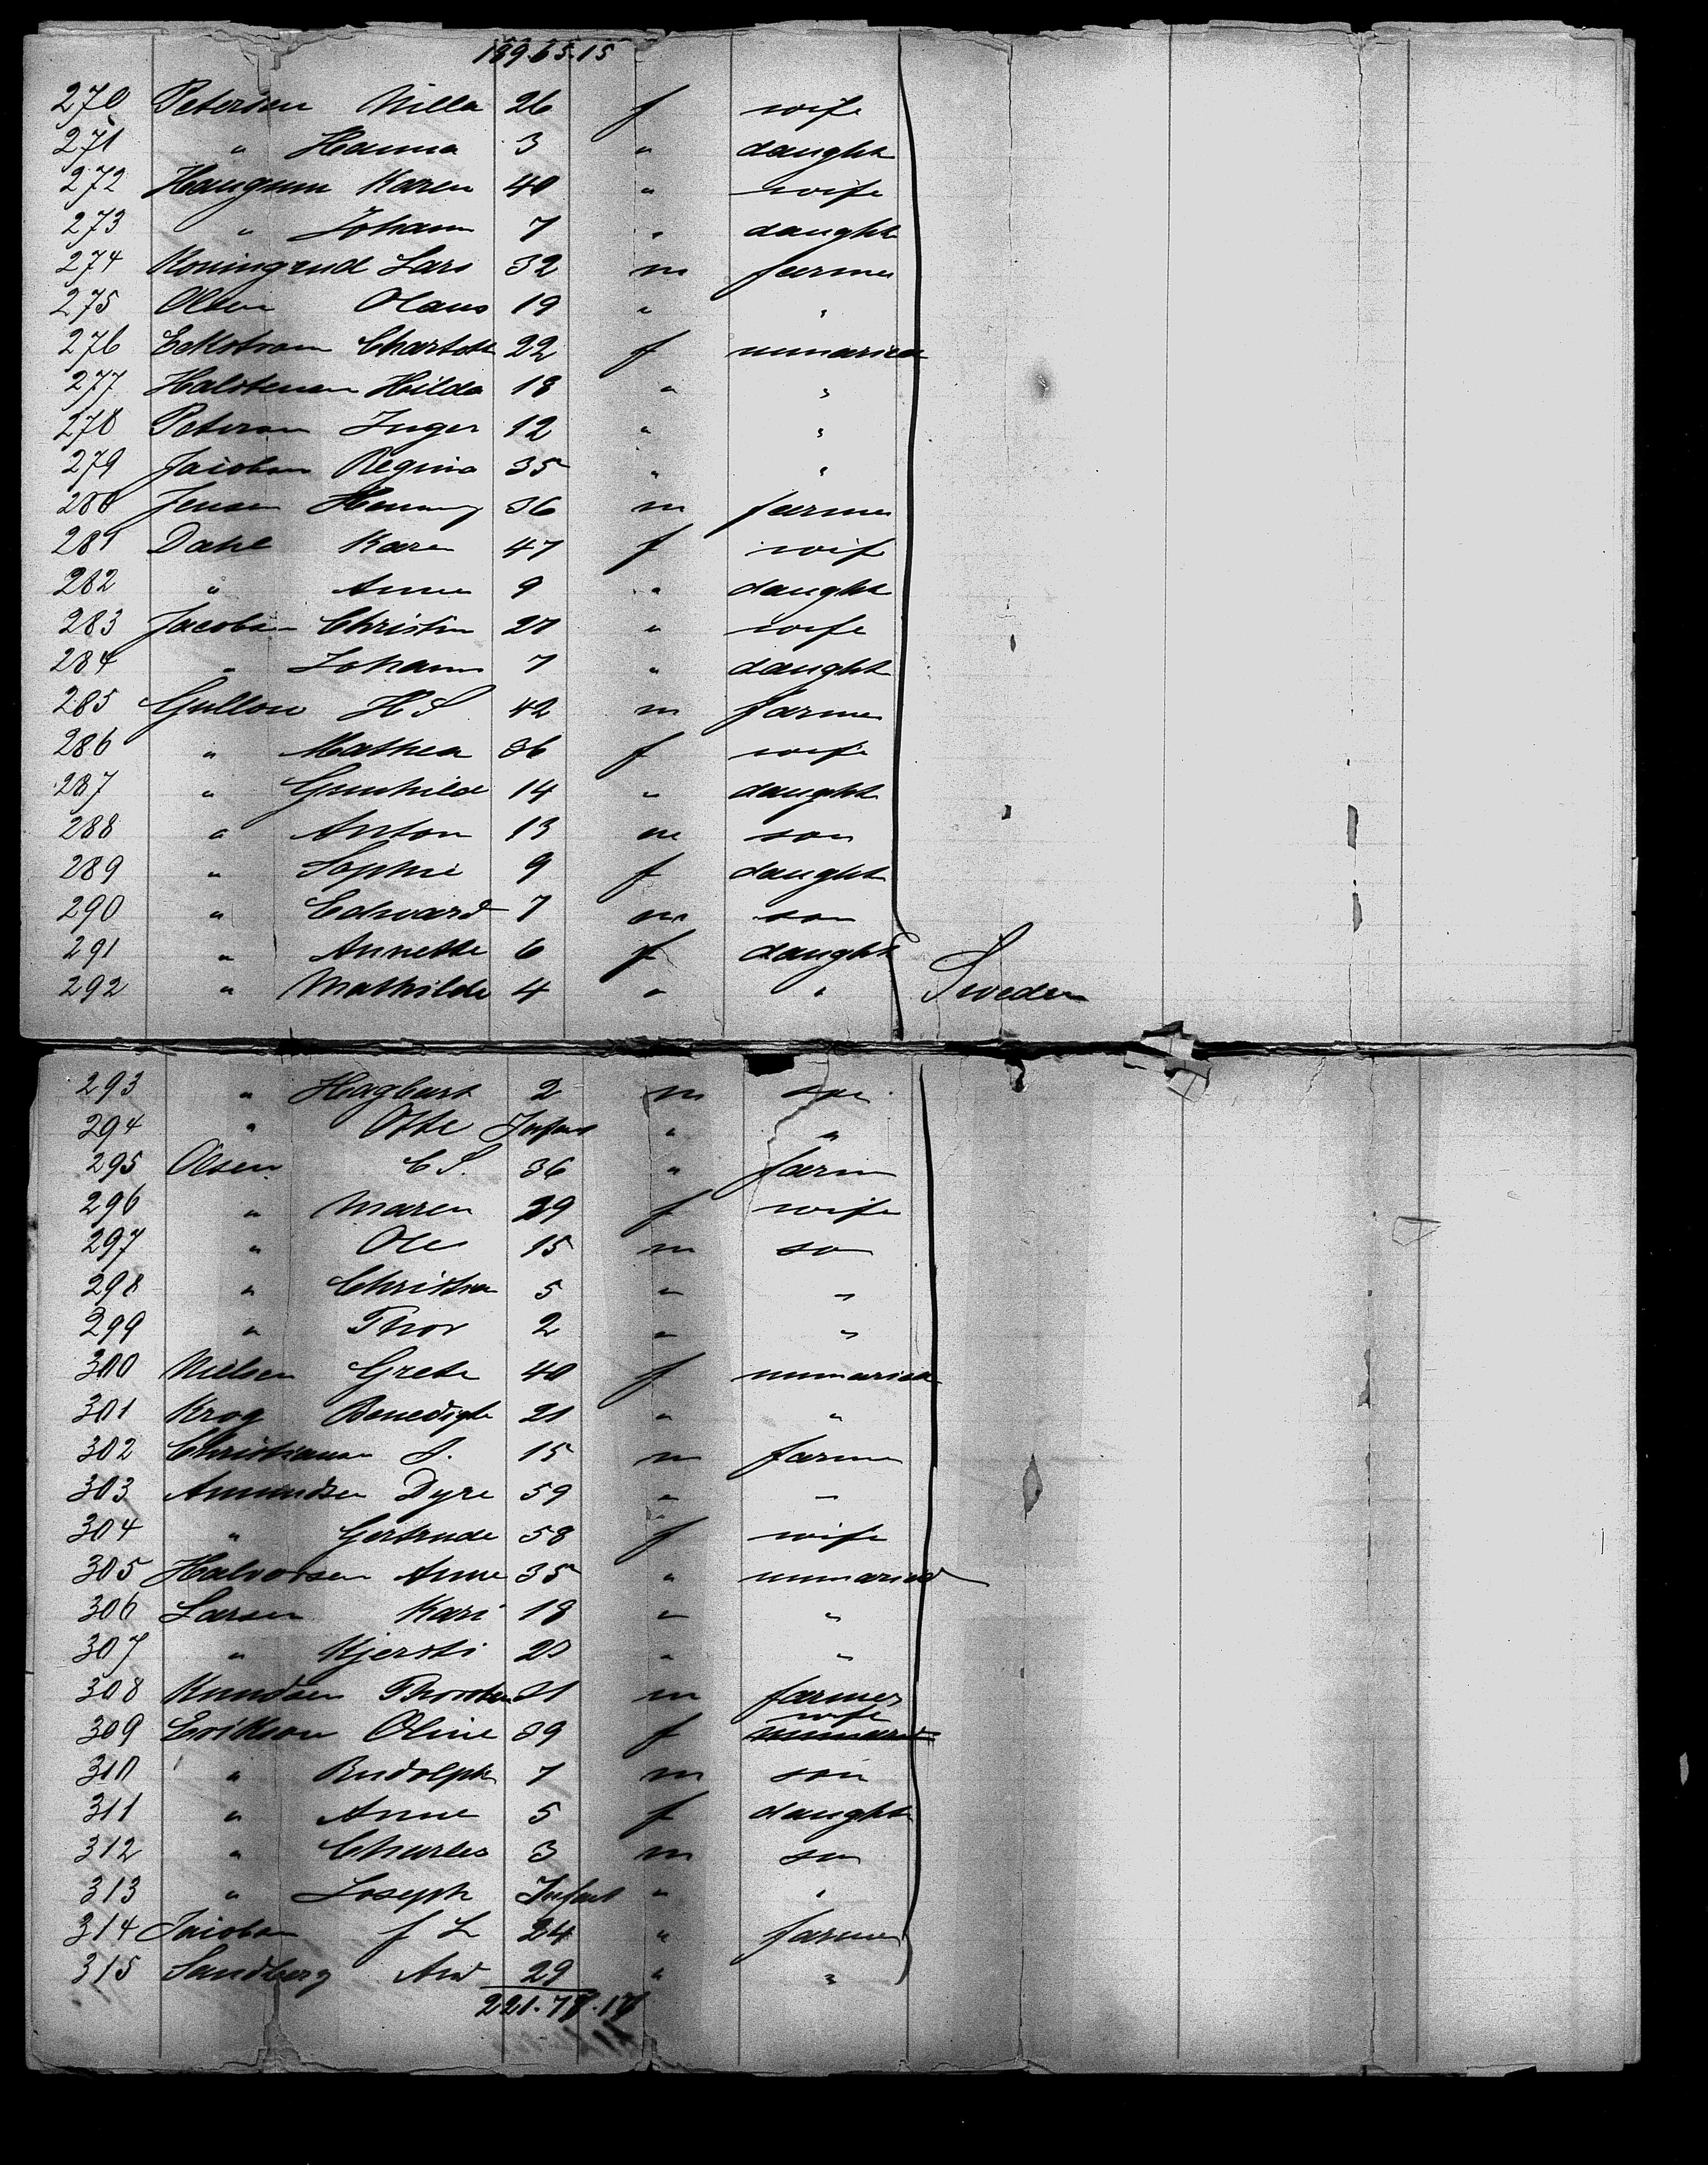 199.65.15
270 Petersen Nilla 26 f wife
271 " Hanna 3 " daught
272 Haugum Karen 40 " wife
273 " Johann 7 " daught
274 Koningrud Lars 32 m farmer
275 Olsen Olaus 19 " "
276 Eckstrom Charlott 22 f unmaried
277 Halstensen Hilda 18 " "
278 Peterson Inger 12 " "
279 Jacobsen Regina 35 " "
280 Jensen Henning 36 m farmer
281 Dahl Karen 47 f wife
282 " Anna 9 " daught
283 Jacobsen Christin 27 " wife
284 " Johann 7 " daught
285 Gullow H S 42 m farmer
286 " Mathea 36 f wife
287 " Gunhild 14 " daught
288 " Anton 13 m son
289 " Sophie 9 f daught
290 " Edward 7 m son
291 " Annette 6 f daught
292 " Mathilde 4 " " Sweden
293 " Hagbart 2 m son
294 " Otte Infant " "
295 Olsen C S. 36 " farm
296 " Maren 29 f wife
297 " Ole 15 m son
298 " Christian 5 " "
299 " Thor 2 " "
300 Nielsen Grete 40 f unmaried
301 Krog Benedigte 21 " "
302 Christiansen A. 15 m farmer
303 Amundsen Dyre 59 " "
304 " Gertrude 58 f wife
305 Halvorsen Anne 35 " unmaried
306 Larsen Kari 18 " "
307 " Kjersti 20 " "
308 Knudsen Thorsten 21 m farmer
309 Erikson Oline 39 f wife
310 " Rudolph 7 m son
311 " Anne 5 f daught
312 " Charles 3 m son
313 " Joseph Infant " "
314 Jacobsen J L 24 " farmer
315 Sandberg And 29 " "
221.77.17